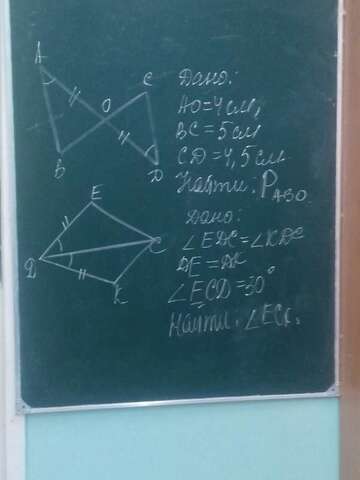 A
C
O
B
D
Дано:
AO=4см,
BC=5см
CD=4,5см.
Найти: P ABO.
E
D
C
K
Дано:
∠EDC=∠KDC
DE=DK
∠ECD=30°
Найти: ∠ECK.